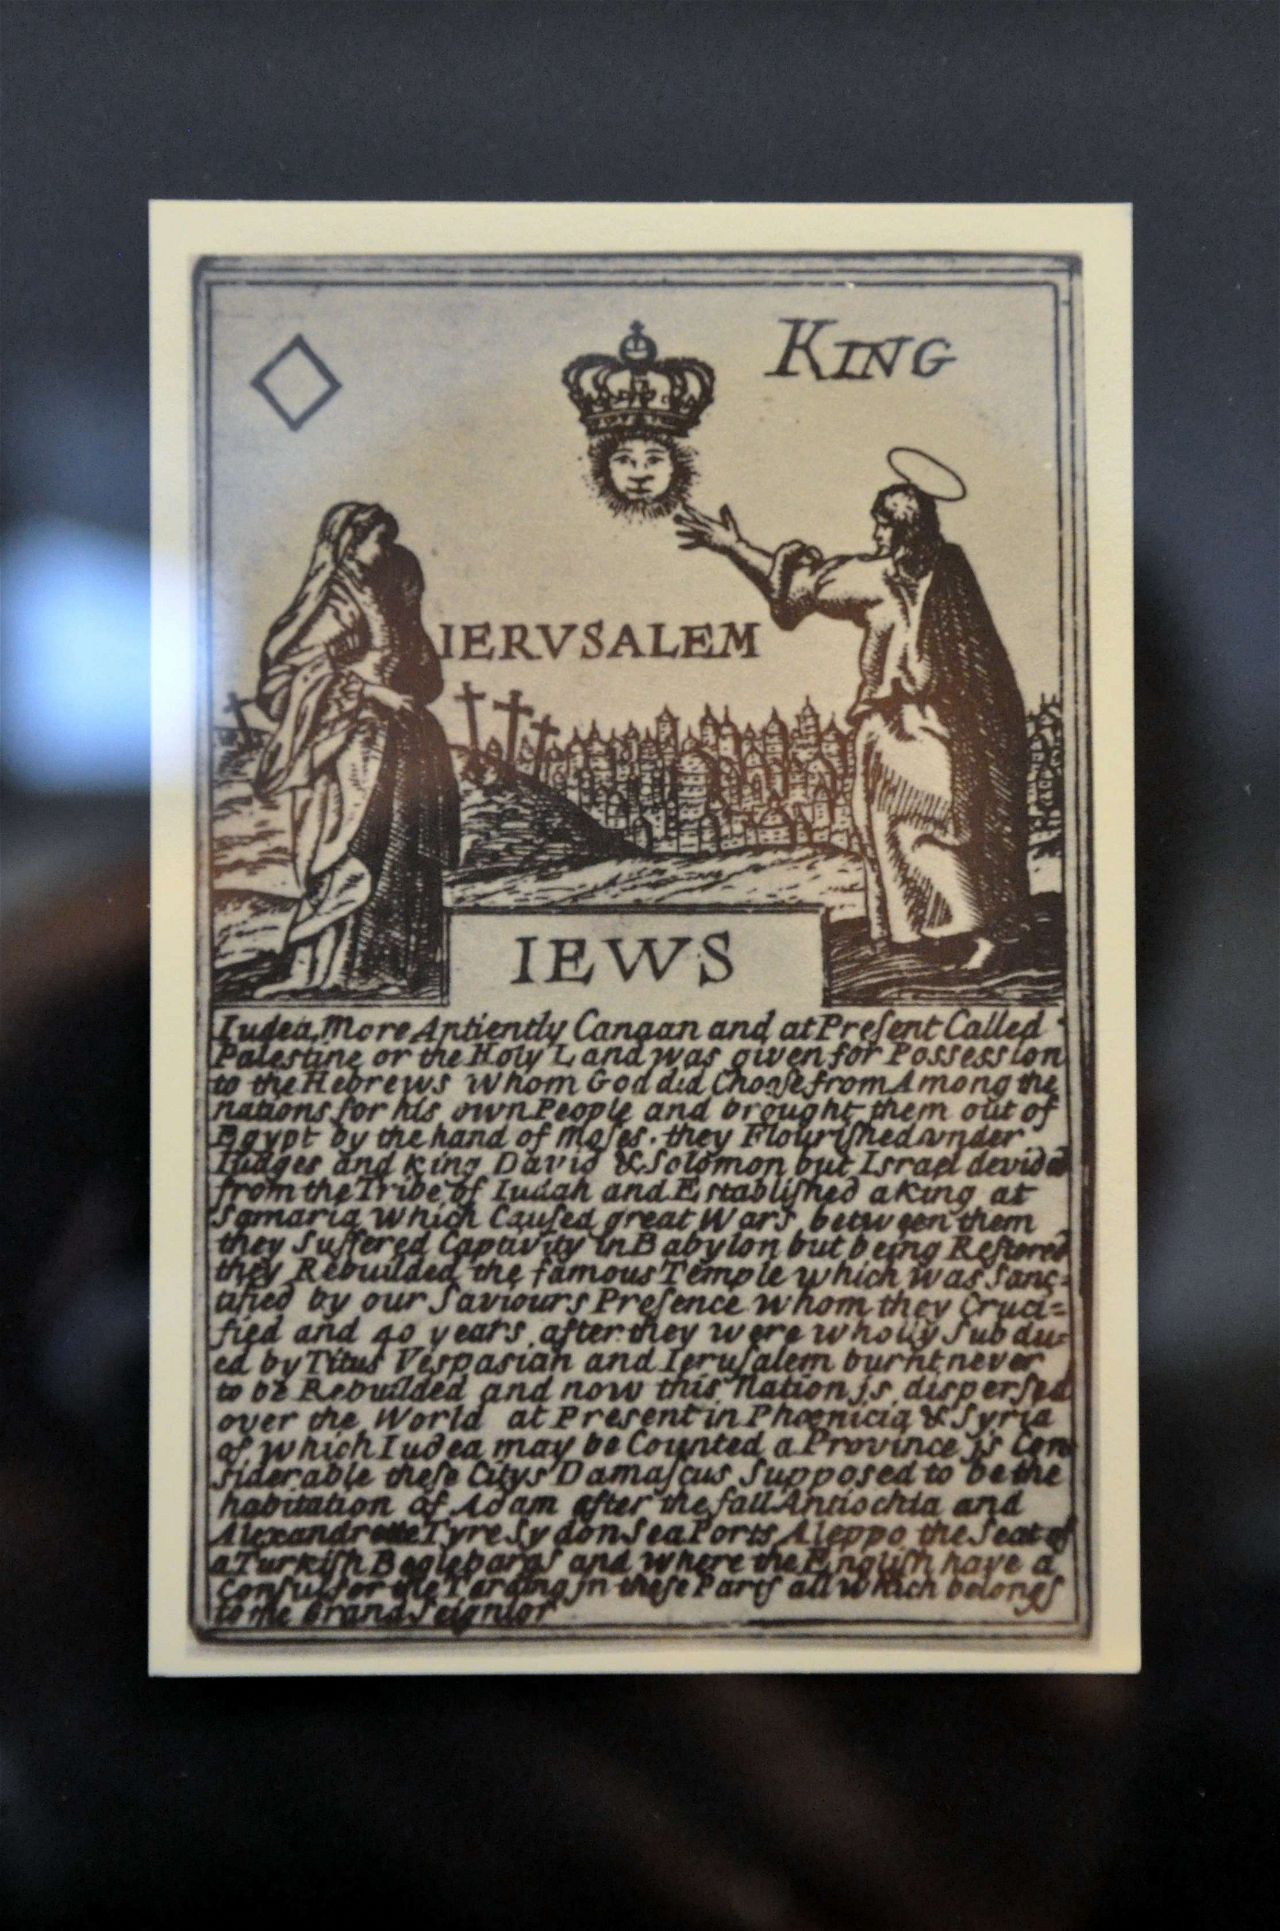 KING
IERVSALEM
IEWS
Iudea, More Antiently Canaan and at Preſent Called
Palestine or the Holy Land was given for Possession
to the Hebrews whom God did Chooſe from Among the
nations for his own People and brought them out of
Egypt by the hand of Moſes. they Flouriſhed under
Iudges and King David & Solomon but Israel devided
from the Tribe of Iudah and Eſtabliſhed a King at
Samaria which Cauſed great Wars between them
they Suffered Captivity in Babylon but being Reſtored
they Rebuilded the famous Temple which was Sanc=
tified by our Saviours Preſence whom they Cruci=
fied and 40 years after they were wholly Subdu=
ed by Titus Veſpasian and Ieruſalem burnt never
to be Rebuilded and now this Nation is diſperſed
over the World at Present in Phœnicia & Syria
of which Iudea may be Counted a Province is Con
ſiderable theſe Citys Damaſcus Supposed to be the
habitation of Adam after the fall Antiochia and
Alexandrette Tyre Sydon Sea Ports Aleppo the Seat of
a Turkiſh and where the Engliſh have a
Conſul for the in theſe Parts all which belongs
to the Grand Seignior